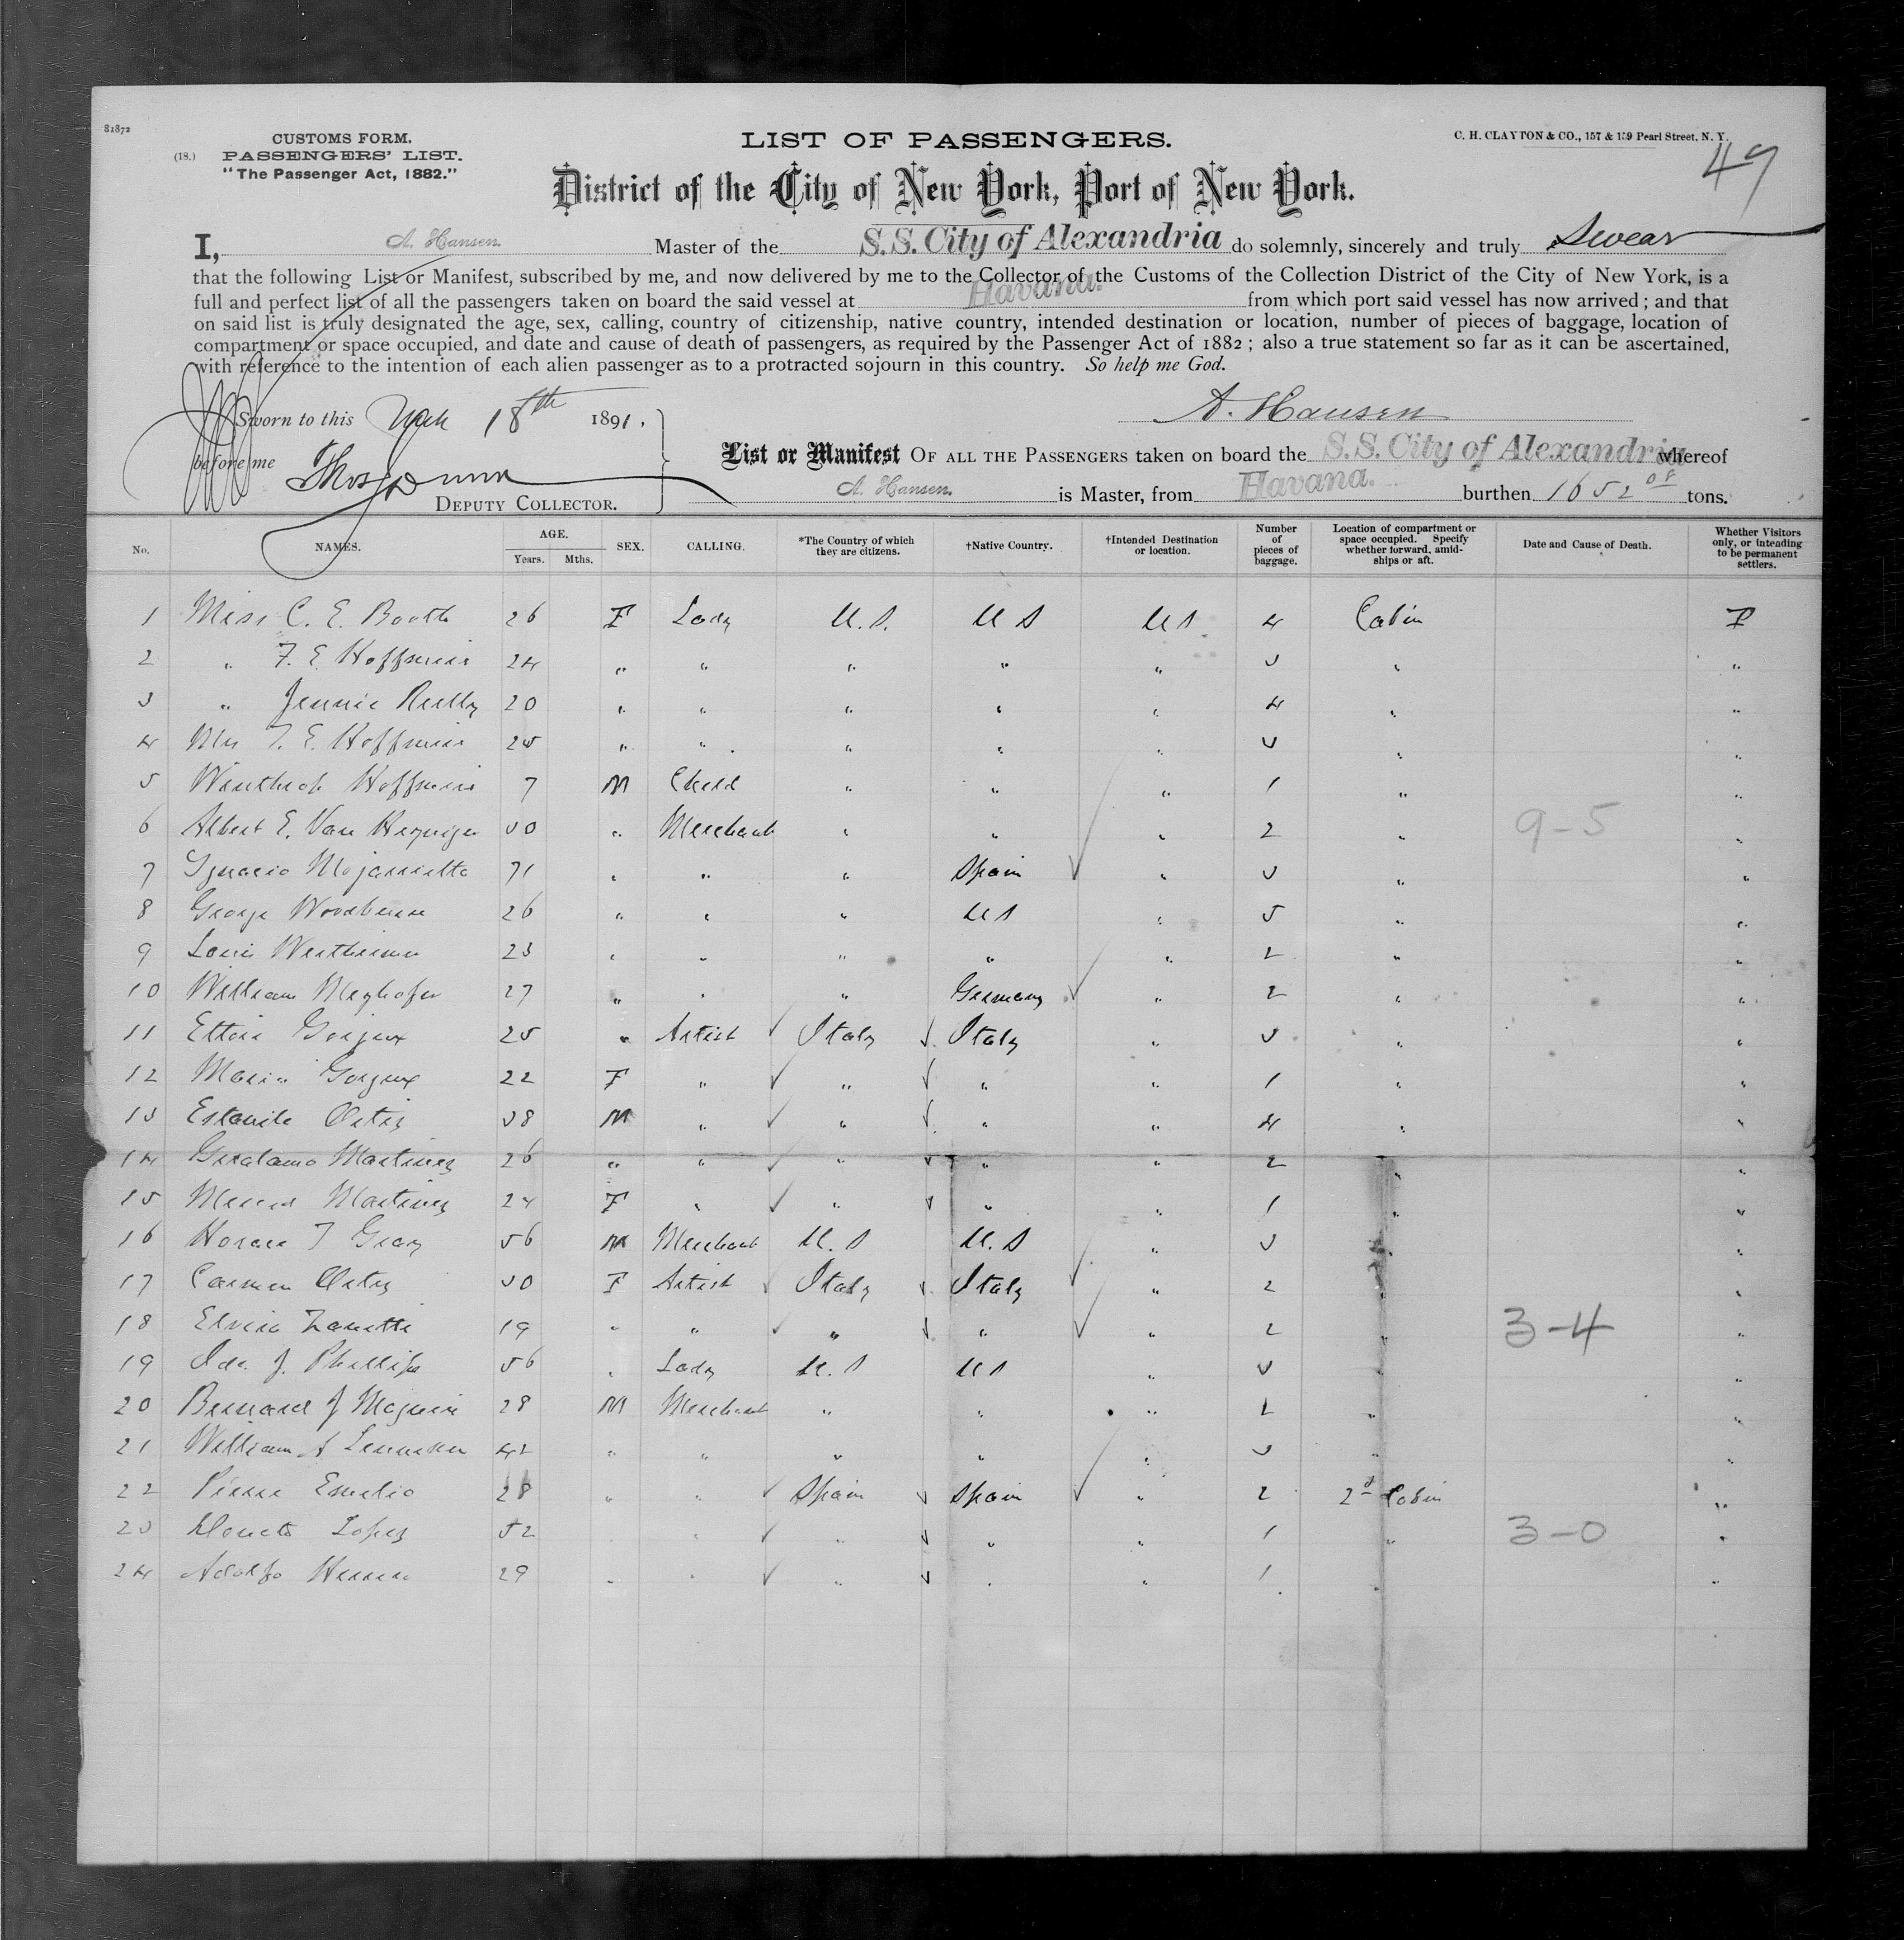 81872
CUSTOMS FORM.
(18.) PASSENGERS' LIST.
"The Passenger Act, 1882."
LIST OF PASSENGERS.
C. H. CLAYTON & CO., 157 & 159 Pearl Street, N. Y.
49
District of the City of New York, Port of New York.
I, A. Hansen. Master of the S.S. City of Alexandria do solemnly, sincerely and truly Swear
that the following List or Manifest, subscribed by me, and now delivered by me to the Collector of the Customs of the Collection District of the City of New York, is a
full and perfect list of all the passengers taken on board the said vessel at Havana. from which port said vessel has now arrived; and that
on said list is truly designated the age, sex, calling, country of citizenship, native country, intended destination or location, number of pieces of baggage, location of
compartment or space occupied, and date and cause of death of passengers, as required by the Passenger Act of 1882; also a true statement so far as it can be ascertained,
with reference to the intention of each alien passenger as to a protracted sojourn in this country. So help me God.
Sworn to this 18th 1891.
A. Hansen
before me Thos Dunn
DEPUTY COLLECTOR.
List or Manifest OF ALL THE PASSENGERS taken on board the S.S. City of Alexandria whereof
A. Hansen. is Master, from Havana. burthen 1652 08 tons.
No. NAMES. AGE. Years. Mths. SEX. CALLING. *The Country of which they are citizens. †Native Country. †Intended Destination or location. Number of pieces of baggage. Location of compartment or space occupied. Specify whether forward, amidships or aft. Date and Cause of Death. Whether Visitors only, or intending to be permanent settlers.
1 Miss C. E. Booth 26 F Lady U.S. U S U S 4 Cabin P
2 " F. E. Hoffmire 24 " " " " " 3 " "
3 " Jennie Reilly 20 " " " " " 4 " "
4 Mrs F. E. Hoffmire 25 " " " " " 3 " "
5 Winthrop Hoffmire 7 M Child " " " 1 " "
6 Albert E. Van 30 " Merchant " " " 2 " 9-5 "
7 Ignacio 71 " " " Spain " 3 " "
8 George Woodhouse 26 " " " U S " 5 " "
9 Louis Wertheimer 23 " " " " " 2 " "
10 William Meyhofer 27 " " " Germany " 2 " "
11 Ettore 25 " Artist Italy Italy " 3 " "
12 Maria 22 F " " " " 1 " "
13 Ortiz 38 M " " " " 4 " "
14 Martinez 26 " " " " " 2 " "
15 Martinez 24 F " " " " 1 " "
16 Horace T Gray 56 M Merchant U. S U. S " 3 "
17 Carmen Ortiz 30 F Artist Italy Italy " 2 " "
18 Elvira Zanetti 19 " " " " " 2 " 3-4 "
19 Ida J. Phillips 56 " Lady U. S U S " 3 "
20 Bernard J Maguire 28 M Merchant " " " 2 " "
21 William A 42 " " " " " 3 " "
22 Emilio 28 " " Spain Spain " 2 2d Cabin "
23 Lopez 52 " " " " " 1 " 3-0 "
24 Adolfo Herrera 29 " " " " " 1 " "